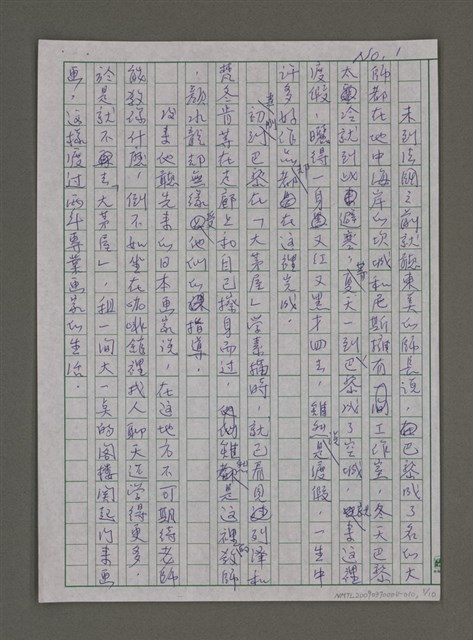 No. 1
未到法國之前就聽東美的師長說，巴黎成了名的大
師都在地中海岸的坎城和尼斯擁有工作室，冬天巴黎
太冷就到此避寒，等夏天一到巴黎成了空城，就來這裡
渡假，曬得一身又紅又黑才回去，雖說是渡假，一生中
許多好作品都在這裡完成。
初到巴黎在「大茅屋」學素描時，就已看見達利、畢和
梵冬肯等在走廊上和自己擦身而過，雖是這裡教師
，顏水龍却無緣受他們的指導。
後來他聽先來的日本畫家說，在這地方不可期待老師
能教你什麼，倒不如坐在咖啡館裡找人聊天還學得更多，
於是就不去「大茅屋」，租一間大一点的閣樓関起門來画
画，這樣渡过兩年專業画家的生活。
NMTL20090490008-010, 1/10